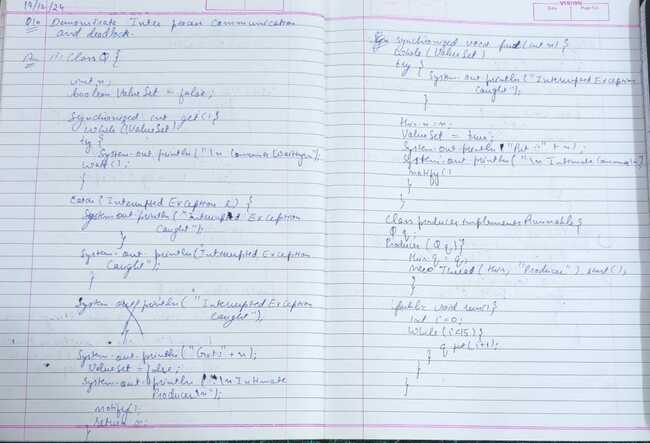 19/12/24
Q10 Demonstrate Inter process Communication
and deadlock.
(i) Class Q {
int n;
boolean ValueSet = false;
Synchronized int get() {
While (!ValueSet)
try {
System.out.println("\n Consumer Waiting\n");
wait();
}
Catch (Interrupted Exception e) {
System.out.println("Interrupted Exception
Caught");
}
System.out.println(Interrupted Exception
Caught");
}
System.out.println( "Interrupted Exception
Caught");
}
System.out.println("Got:" + n);
ValueSet = false;
System.out.println("\n Intimate
Producer\n");
notify();
return n;
}
Synchronized void put (int n) {
While (ValueSet)
try {
System.out.println("Interrupted Exception
Caught");
}
this.n = n;
ValueSet = true;
System.out.println("Put :" + n);
System.out.println("\n Intimate Consumer\n");
notify()
}
}
Class producer implements Runnable {
Q q;
Producer (Q q) {
this.q = q;
new Thread (this, "Producer").start();
}
}
public void run() {
int i = 0;
While (i<15) {
q.put(i++);
}
}
}
VISION
Date
Page No.